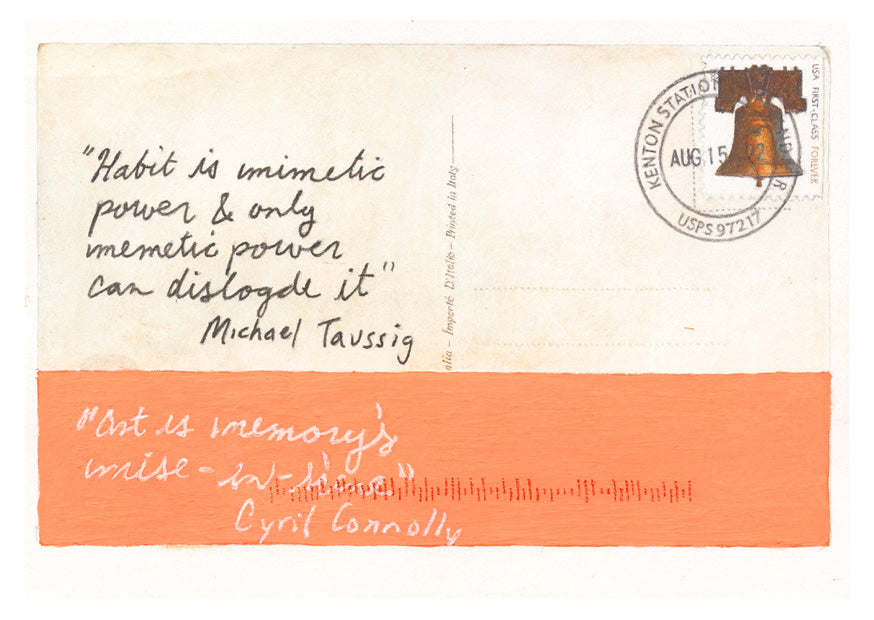 "Habit is mimetic
power & only
memetic power
can dislogde it"
Michael Taussig
alia – Importé D'Italie – Printed in Italy
KENTON STATION
AUG 15
USPS 97217
USA FIRST-CLASS FOREVER
"Art is memory's
mise-en-scène"
Cyril Connolly